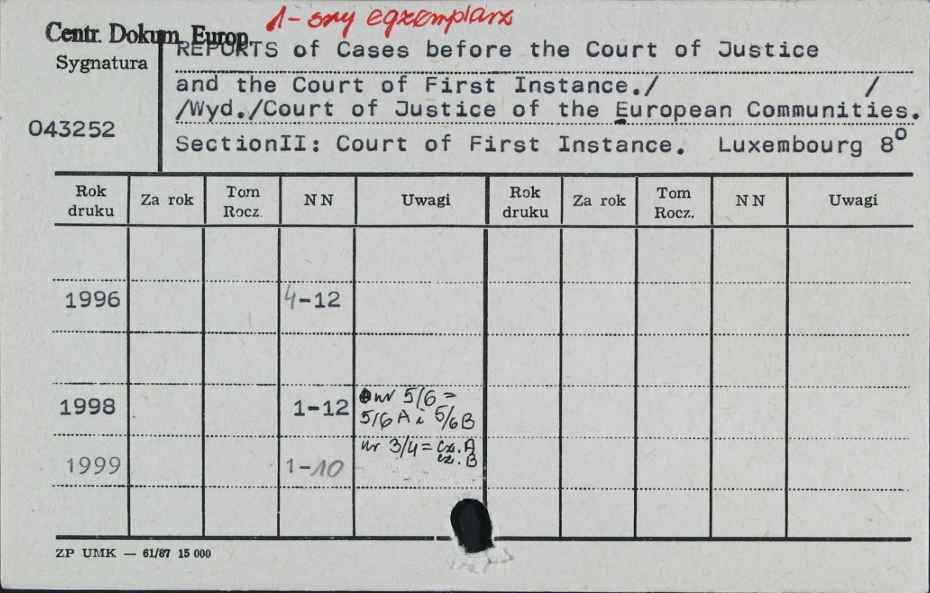 1-szy egzemplarz
Centr. Dokum. Europ.
Sygnatura
043252
REPORTS of Cases before the Court of Justice
and the Court of First Instance./ /
/Wyd./Court of Justice of the European Communities.
SectionII: Court of First Instance. Luxembourg 8°
Rok druku Za rok Tom Rocz. NN Uwagi Rok druku Za rok Tom Rocz. NN Uwagi
1996 4-12
1998 1-12 nr 5/6 =
5/6 A i 5/6 B
1999 1-10 nr 3/4 = cz. A
cz. B
ZP UMK — 61/87 15 000